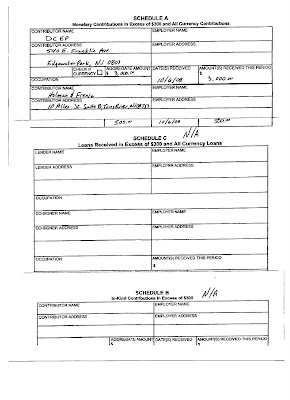 SCHEDULE A
Monetary Contributions in Excess of $300 and All Currency Contributions
CONTRIBUTOR NAME EMPLOYER NAME
DCEP
CONTRIBUTOR ADDRESS EMPLOYER ADDRESS
540 E. Franklin Ave
Edgewater Park, NJ 0801
CHECK IF CURRENCY AGGREGATE AMOUNT DATE(S) RECEIVED AMOUNT(S) RECEIVED THIS PERIOD
$ 3,000.00 10/6/08 $ 3,000.00
OCCUPATION
CONTRIBUTOR NAME EMPLOYER NAME
Holman & Frenia
CONTRIBUTOR ADDRESS EMPLOYER ADDRESS
10 Allen St. Suite B, Toms River, NJ 08753
500.00 10/6/08 500.00
N/A
SCHEDULE C
Loans Received in Excess of $300 and All Currency Loans
LENDER NAME EMPLOYER NAME
LENDER ADDRESS EMPLOYER ADDRESS
OCCUPATION
CO-SIGNER NAME EMPLOYER NAME
CO-SIGNER ADDRESS EMPLOYER ADDRESS
OCCUPATION AMOUNT(S) RECEIVED THIS PERIOD
$
SCHEDULE B N/A
In-Kind Contributions in Excess of $300
CONTRIBUTOR NAME EMPLOYER NAME
CONTRIBUTOR ADDRESS EMPLOYER ADDRESS
AGGREGATE AMOUNT DATE(S) RECEIVED AMOUNT(S) RECEIVED THIS PERIOD
$ $